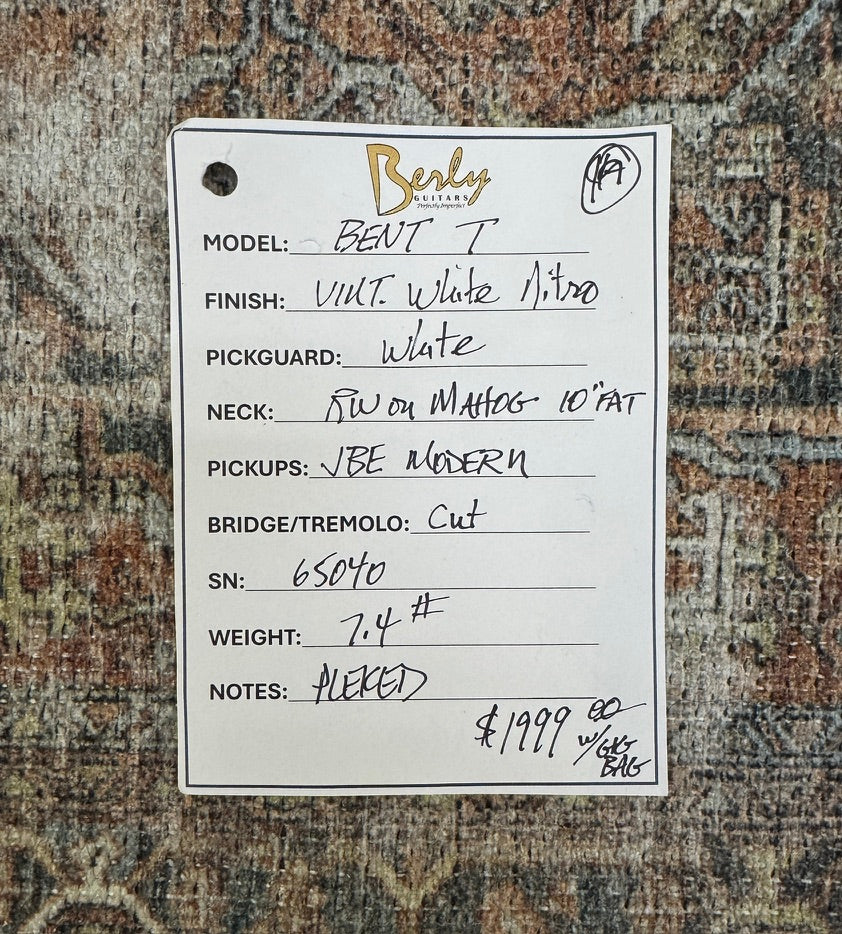 Berly
GUITARS
Perfectly Imperfect
MODEL: BENT T
FINISH: VINT. White Nitro
PICKGUARD: White
NECK: RW on MAHOG 10" FAT
PICKUPS: JBE MODERN
BRIDGE/TREMOLO: Cut
SN: 65040
WEIGHT: 7.4 #
NOTES: PLEKED
$1999 00
w/GIG
BAG